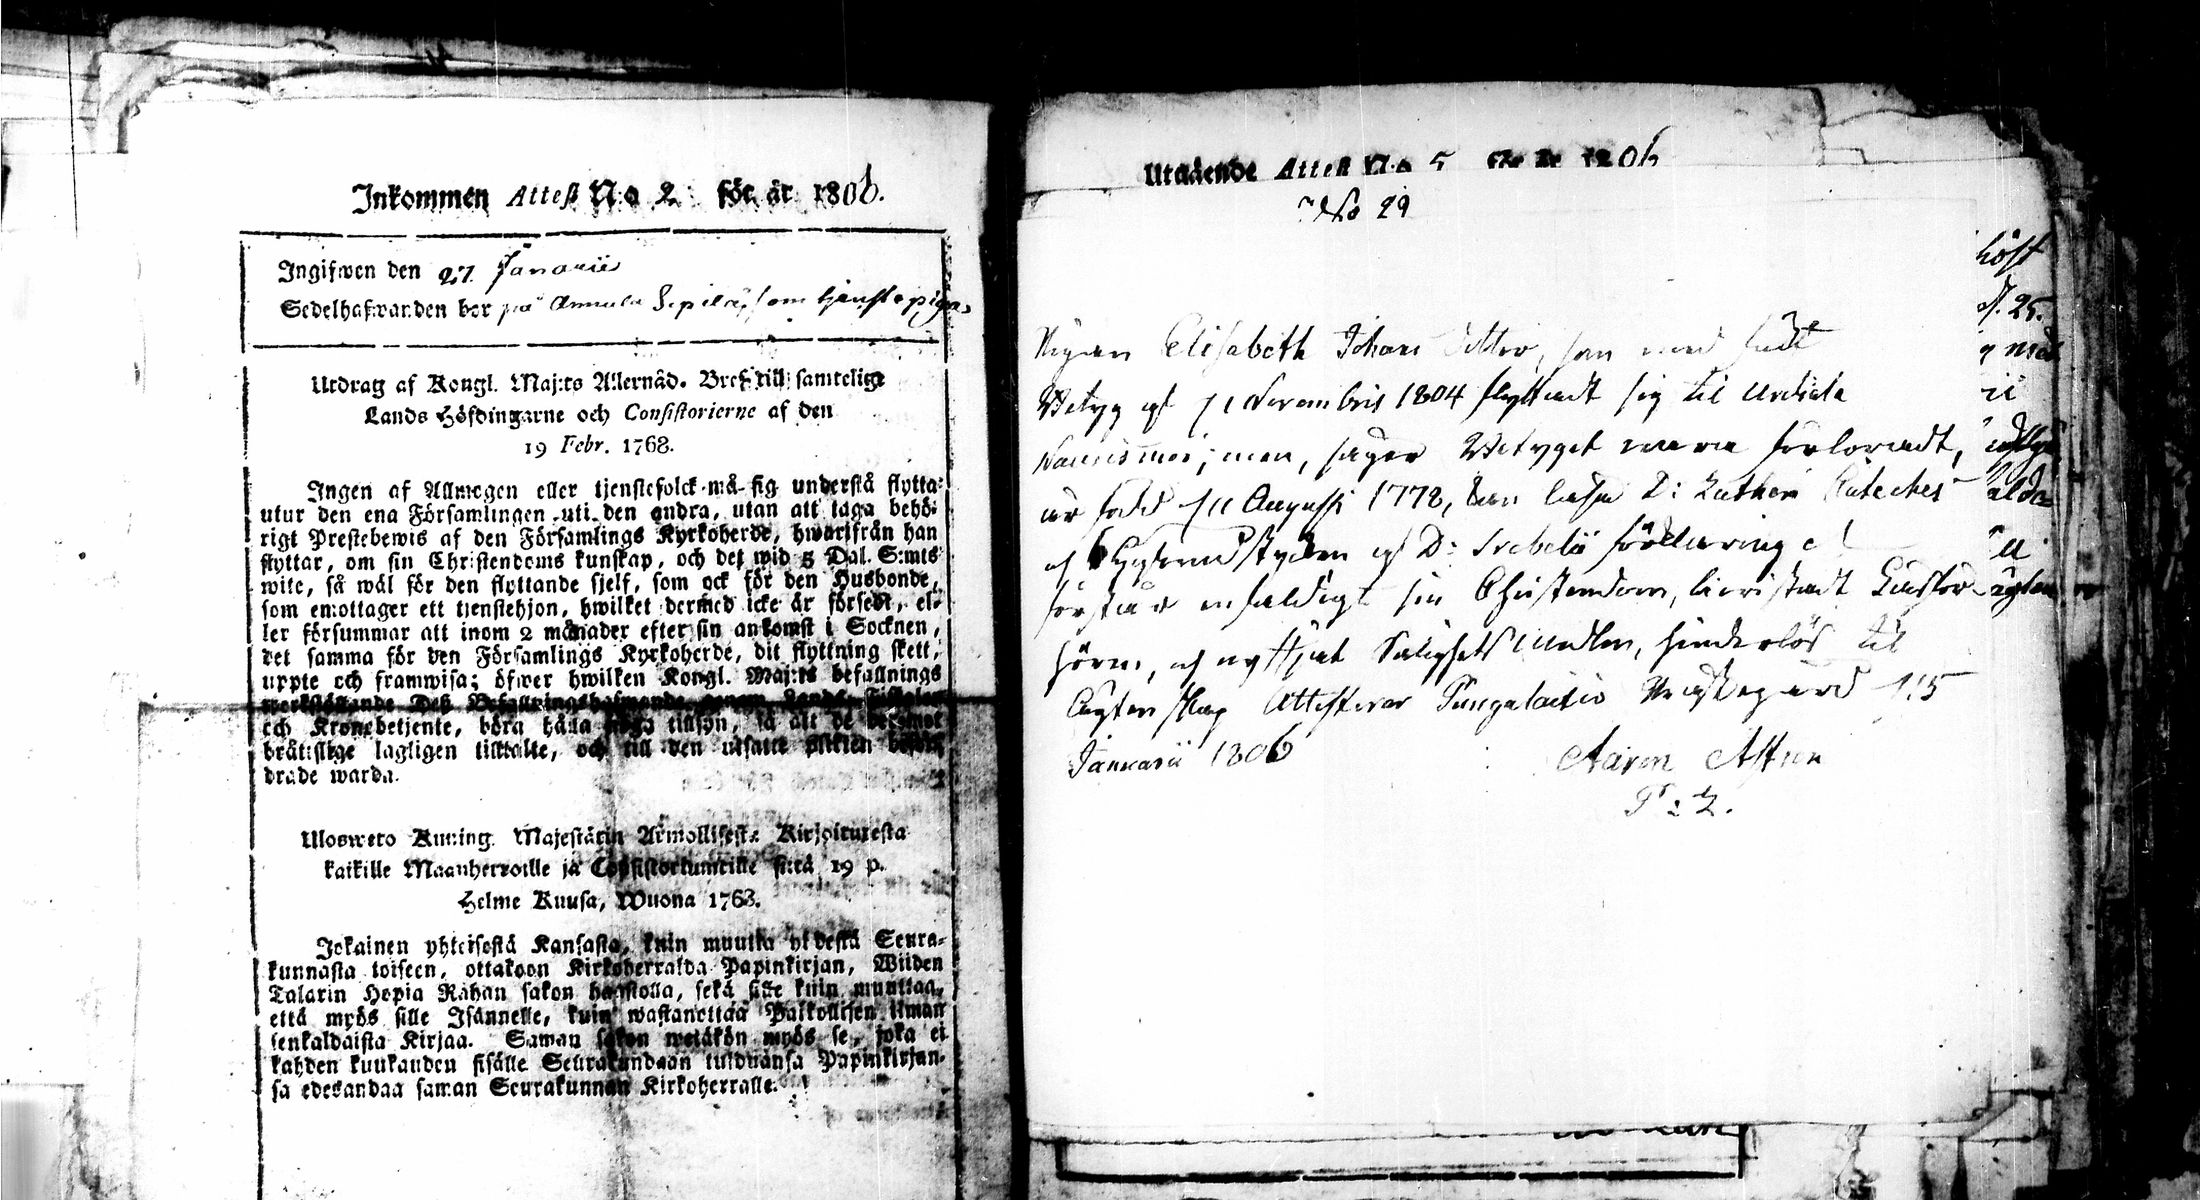 Inkommen Attest N:o 2. för år 1806.
Ingifwen den 27 Januarii
Sedelhafwanden bor på Annula Sepilä, som tjenstepiga
Utdrag af Kongl. Maj:ts Allernåd. Bref till samtelige
Lands Höfdingarne och Consistorierne af den
19 Febr. 1768.
Ingen af Allmogen eller tjenstefolck må sig understå flytta
utur den ena Församlingen uti den andra, utan att taga behö-
rigt Prestebewis af den Församlings Kyrkoherde, hwarifrån han
flyttar, om sin Christendoms kunskap, och det wid 5 Dal. S:mts
wite, så wäl för den flyttande sjelf, som ock för den Husbonde,
som emottager ett tjenstehjon, hwilket dermed icke är försedt, el-
ler försummar att inom 2 månader efter sin ankomst i Socknen,
det samma för den Församlings Kyrkoherde, dit flyttning skett,
uppte och framwisa; öfwer hwilken Kongl. Maj:ts befallnings
werkställande Deß Befallningshafwande, genom Lands Fiskaler
och Kronobetjente, böra hålla noga tillsyn, så att de deremot
bråttslige lagligen tilltalte, och till den utsatte plikten
drade warda.
Uloswето Kuning. Majestätin Armollisesta Kirjoituxesta
kaikille Maanherroille ja Consistoriumeille siitä 19 p.
Helme Kuusa, Wuona 1768.
Jokainen yhteisestä Kansasta, kuin muutta yhdestä Seura-
kunnasta toiseen, ottakoon Kirkoherralda Papinkirjan, Wiiden
Talarin Hopia Rahan sakon haastolla, sekä sille kuin muuttaa,
että myös sille Isännelle, kuin wastanottaa Palkollisen ilman
senkaldaista Kirjaa. Saman sakon wetäkön myös se, joka ei
kahden kuukauden sisälle Seurakundaan tulduansa Papinkirjan-
sa edeskandaa saman Seurakunnan Kirkoherralle.
Utgående Attest N:o 5 för år 1806
No 29
Pigan Elisabeth Johans dotter, som med sitt
Betyg af 11 Novembris 1804 flyttadt sig til Urdiala
men, säger Betyget vara förloradt,
är född 11 Augusti 1778, kan läsa D: Lutheri Cateches
och Hufvudstycken af D: Svebelii förklaring
förstår enfaldigt sin Christendom, bevistadt Läsför
hören, och nyttjat Salighets Medlen, hinderlös til
Ägtenskap Attesterar Pungalaitio Prästegård 15
Januarii 1806
höst
d. 25.